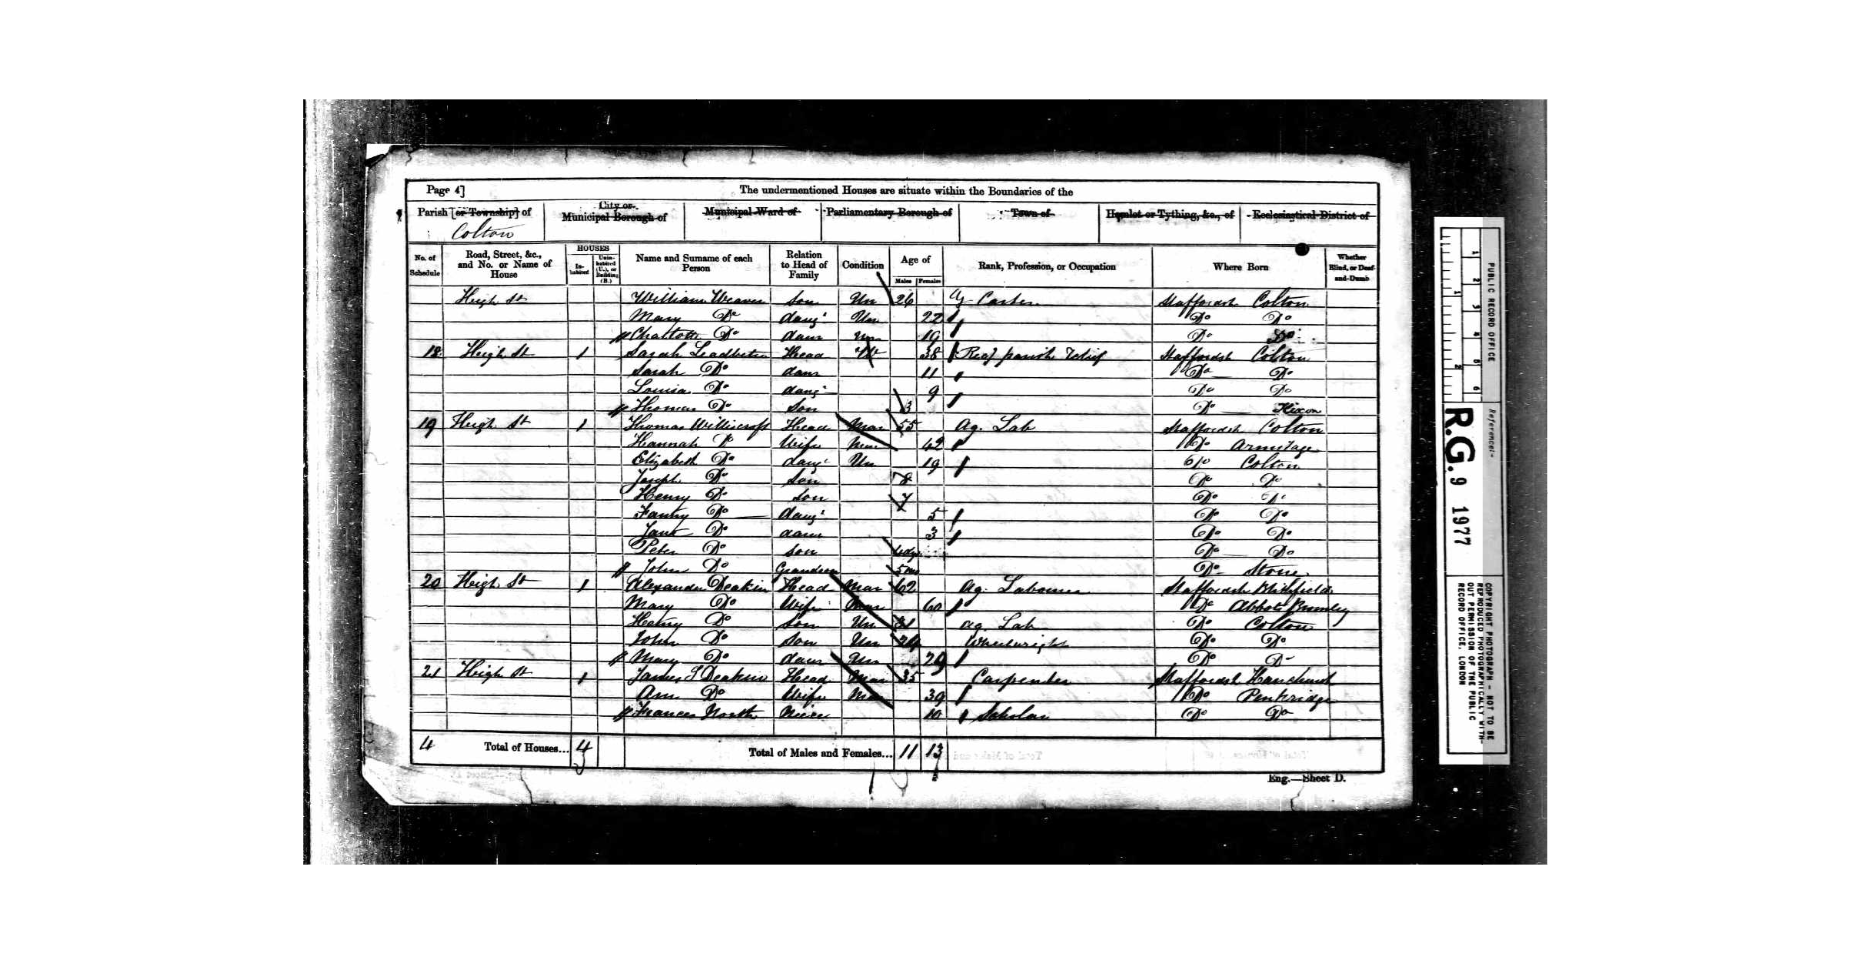 Page 4]
The undermentioned Houses are situate within the Boundaries of the
Parish [or Township] of
City or Municipal Borough of
Municipal Ward of
Parliamentary Borough of
Town of
Hamlet or Tything, &c., of
Ecclesiastical District of
Colton
No. of Schedule
Road, Street, &c., and No. or Name of House
HOUSES
Inhabited
Uninhabited (U.), or Building (B.)
Name and Surname of each Person
Relation to Head of Family
Condition
Age of
Males
Females
Rank, Profession, or Occupation
Where Born
Whether Blind, or Deaf-and-Dumb
Heigh St William Weaver Son Un 26 Carter Staffordsh Colton
Mary Do daugr Un 22 Do Do
Charlotte Do daur Un 19 Do Do
18 Heigh St 1 Sarah Leadbeter Head 38 parish relief Staffordsh Colton
Sarah Do daur 11 Do Do
Louisa Do daugr 9 Do Do
Thomas Do Son 3 Do Hixon
19 Heigh St 1 Thomas Williscroft Head Mar 55 Ag. Lab Staffordsh Colton
Hannah Do Wife Mar 42 Do Armitage
Elizabeth Do daugr Un 19 Do Colton
Joseph Do Son Do Do
Henry Do Son 7 Do Do
Fanny Do daugr 5 Do Do
Jane Do daur 3 Do Do
Peter Do Son Do Do
John Do Grandson 5 mo Do Stone
20 Heigh St 1 Alexander Deakin Head Mar 62 Ag. Labourer Staffordsh Blithfield
Mary Do Wife Mar 60 Do Abbots Bromley
Henry Do Son Un 31 Ag. Lab Do Colton
John Do Son Un 24 Wheelwright Do Do
Mary Do daur Un 29 Do Do
21 Heigh St 1 James Deakin Head Mar 35 Carpenter Staffordsh
Ann Do Wife Mar 39 Do Penkridge
Frances North Niece 10 Scholar Do Do
4 Total of Houses... 4 Total of Males and Females... 11 13
Eng.—Sheet D.
PUBLIC RECORD OFFICE
1 2 3 4 5 6
1 2
Reference:-
R.G. 9 1977
COPYRIGHT PHOTOGRAPH - NOT TO BE REPRODUCED PHOTOGRAPHICALLY WITHOUT PERMISSION OF THE PUBLIC RECORD OFFICE, LONDON